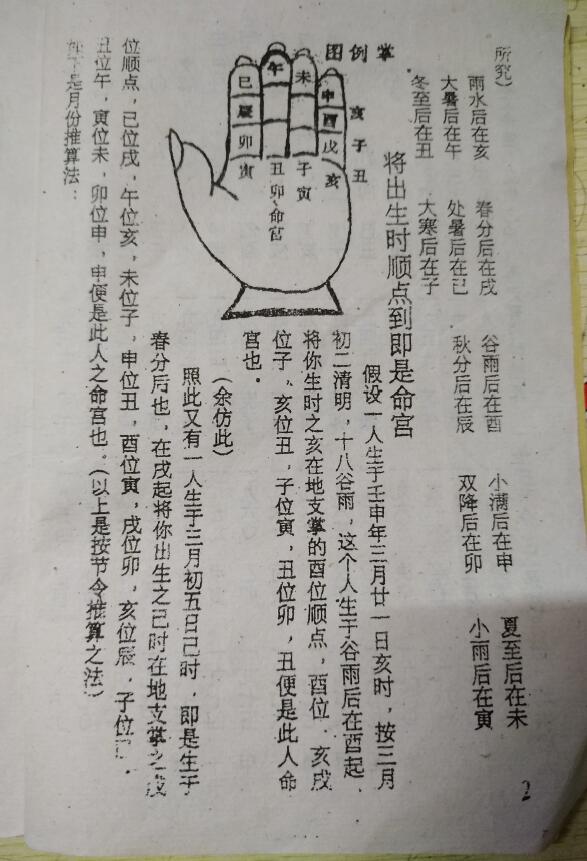 所究）
雨水后在亥　春分后在戌　谷雨后在酉　小满后在申　夏至后在未
大暑后在午　处暑后在已　秋分后在辰　双降后在卯　小雨后在寅
冬至后在丑　大寒后在子
将出生时顺点到即是命宫
掌例图
巳 午 未 申
辰 酉
卯 戌
寅 丑 子 亥
卯、命宫
寅
亥 子 丑
假设一人生于壬申年三月廿一日亥时，按三月
初二清明，十八谷雨，这个人生于谷雨后在酉起，
将你生时之亥在地支掌的酉位顺点，酉位 亥戌
位子、亥位丑，子位寅，丑位卯，丑便是此人命
宫也．
（余仿此）
照此又有一人生于三月初五日己时，即是生于
春分后也，在戌起将你出生之已时在地支掌之戌
位顺点，已位戌，午位亥，未位子，申位丑，酉位寅，戌位卯，亥位辰，子位
丑位午，寅位未，卯位申，申便是此人之命宫也。（以上是按节令推算之法）
如下是月份推算法：
2